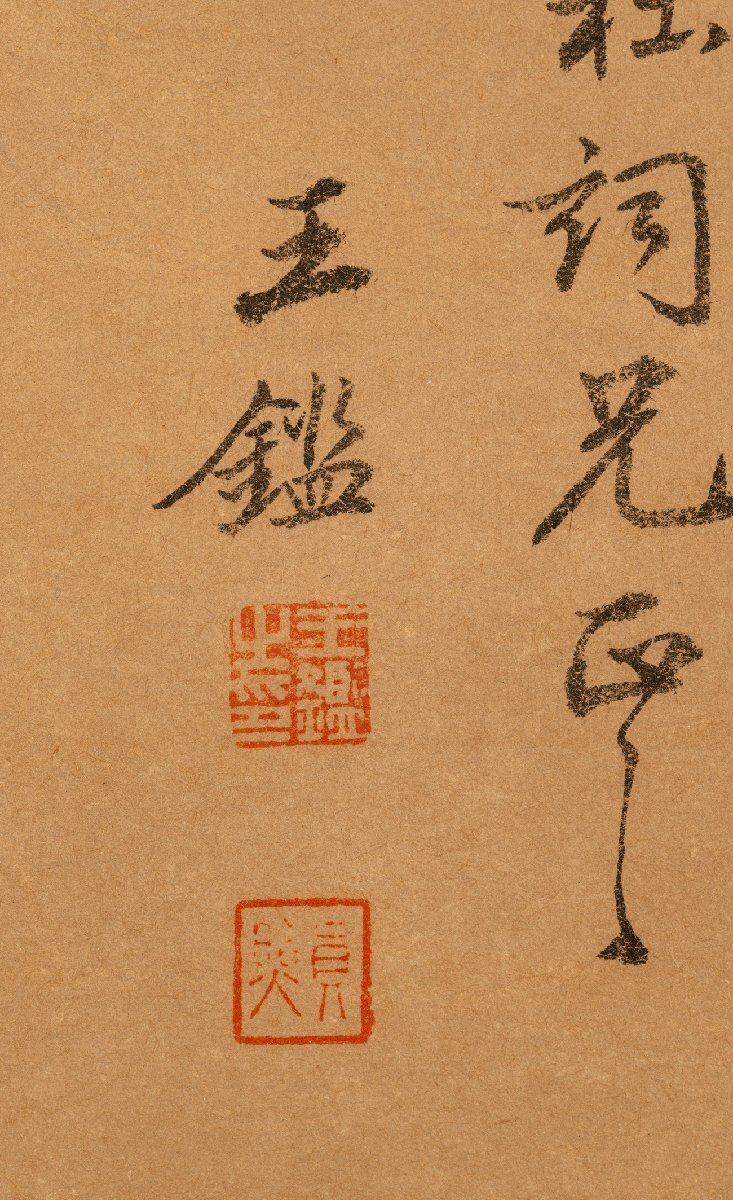 詞兄正
王鑑
王鑑之印